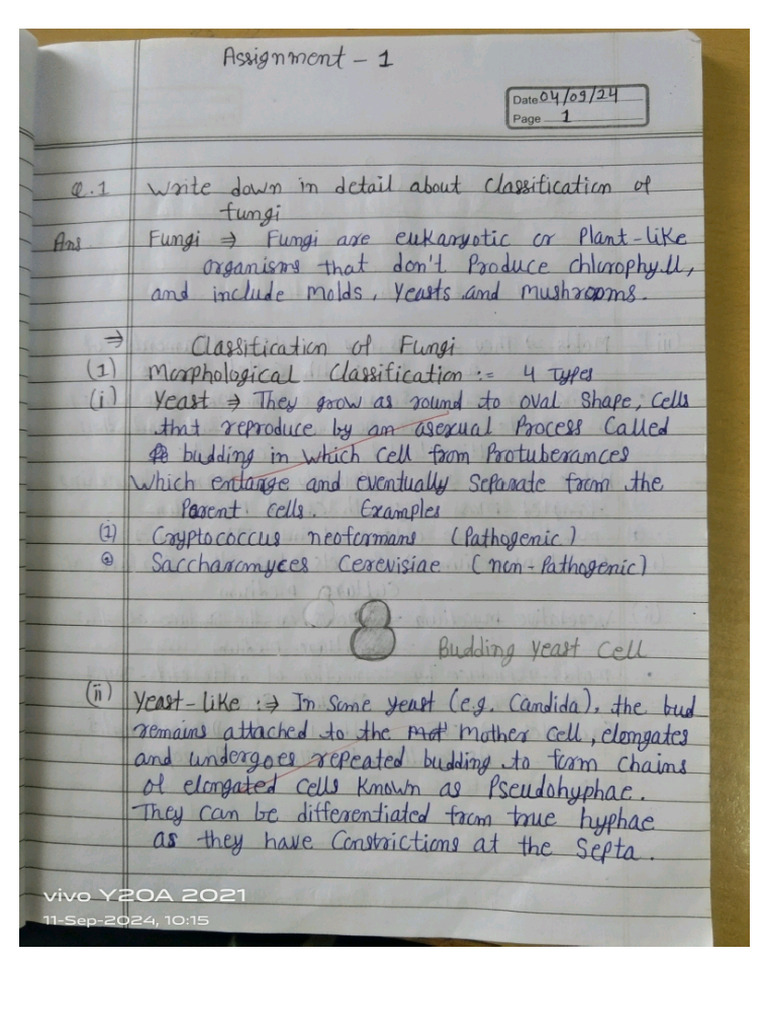 Assignment - 1
Date 04/09/24
Page 1
Q.1 Write down in detail about Classification of
fungi
Ans Fungi ⇒ Fungi are eukaryotic or Plant-like
organisms that don't Produce chlorophyll,
and include molds, yeasts and mushrooms.
⇒ Classification of Fungi
(1) Morphological Classification := 4 Types
(i) Yeast ⇒ They grow as round to oval Shape, Cells
that reproduce by an asexual Process Called
budding in which cell from Protuberances
Which enlarge and eventually Separate from the
Parent cells. Examples
(1) Cryptococcus neoformans (Pathogenic)
Saccharomyces Cerevisiae (non-Pathogenic)
Budding Yeast Cell
(ii) Yeast-like :⇒ In Some yeast (e.g. Candida), the bud
remains attached to the Mother cell, elongates
and undergoes repeated budding to form chains
of elongated cells Known as Pseudohyphae.
They can be differentiated from true hyphae
as they have Constrictions at the Septa.
vivo Y20A 2021
11-Sep-2024, 10:15